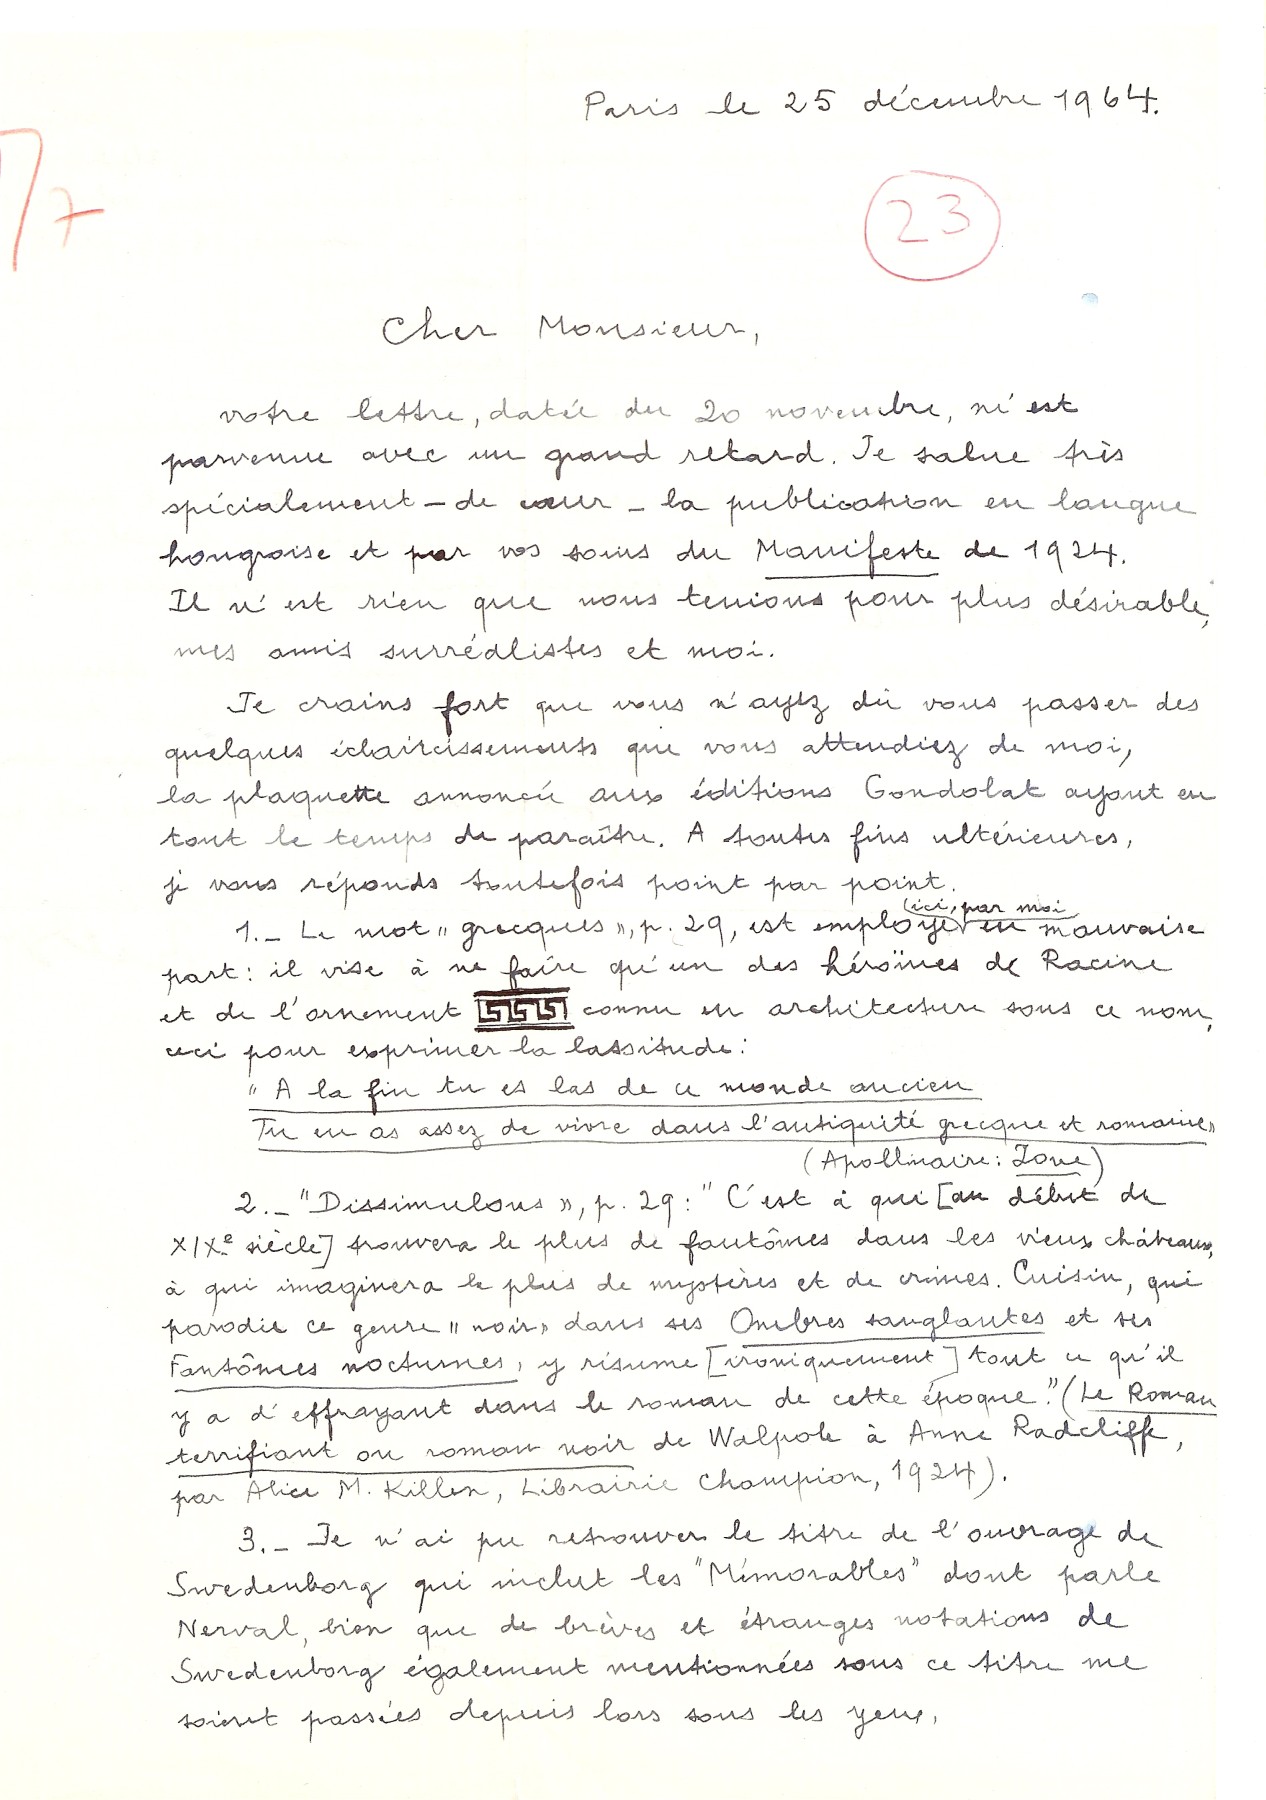 Paris le 25 décembre 1964.
7
23
Cher Monsieur,
votre lettre, datée du 20 novembre, m'est
parvenue avec un grand retard. Je salue très
spécialement – de cœur – la publication en langue
hongroise et par vos soins du Manifeste de 1924.
Il n'est rien que nous tenions pour plus désirable,
mes amis surréalistes et moi.
Je crains fort que vous n'ayez dû vous passer des
quelques éclaircissements que vous attendiez de moi,
la plaquette annoncée aux éditions Gondolat ayant eu
tout le temps de paraître. A toutes fins ultérieures,
je vous réponds toutefois point par point.
(ici, par moi
1._ Le mot "grecques", p. 29, est employé en mauvaise
part : il vise à ne faire qu'un des héroïnes de Racine
et de l'ornement connu en architecture sous ce nom,
ceci pour exprimer la lassitude :
"A la fin tu es las de ce monde ancien
Tu en as assez de vivre dans l'antiquité grecque et romaine"
(Apollinaire : Zone)
2._ "Dissimulons", p. 29 : "C'est à qui [au début du
XIXe siècle] trouvera le plus de fantômes dans les vieux châteaux,
à qui imaginera le plus de mystères et de crimes. Cuisin, qui
parodie ce genre "noir" dans ses Ombres sanglantes et ses
Fantômes nocturnes, y résume [ironiquement] tout ce qu'il
y a d'effrayant dans le roman de cette époque." (Le Roman
terrifiant ou roman noir de Walpole à Anne Radcliffe,
par Alice M. Killen, Librairie Champion, 1924).
3._ Je n'ai pu retrouver le titre de l'ouvrage de
Swedenborg qui inclut les "Mémorables" dont parle
Nerval, bien que de brèves et étranges notations de
Swedenborg également mentionnées sous ce titre me
soient passées depuis lors sous les yeux.